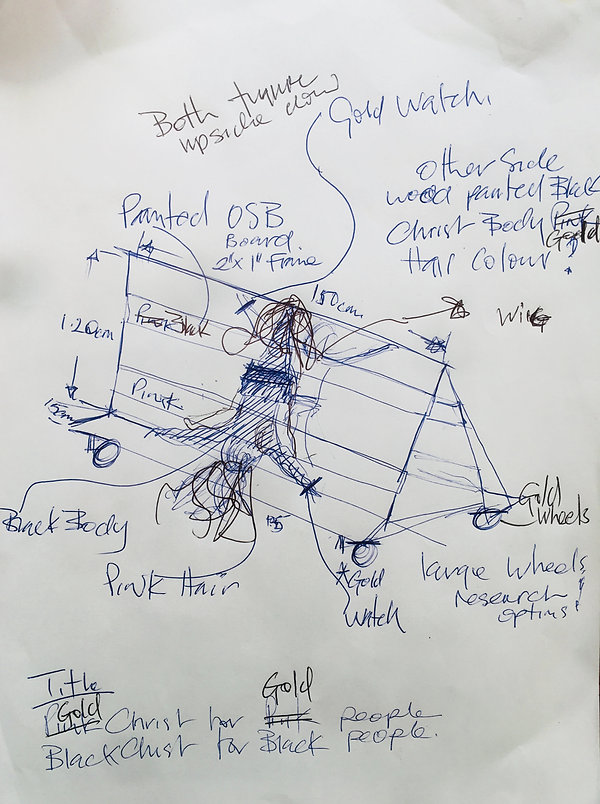 Both
upside down
Gold Watch.
Other Side
wood painted Black
Christ Body Gold
Hair Colour
Painted OSB
Board.
2"x1" Frame
150cm
1.20cm
Black
Pink
15cm
Black Body
Pink Hair
Gold
Watch
Gold
Wheels
large wheels
research
options!
Title
Gold Christ for Gold people
Black Christ for Black people.